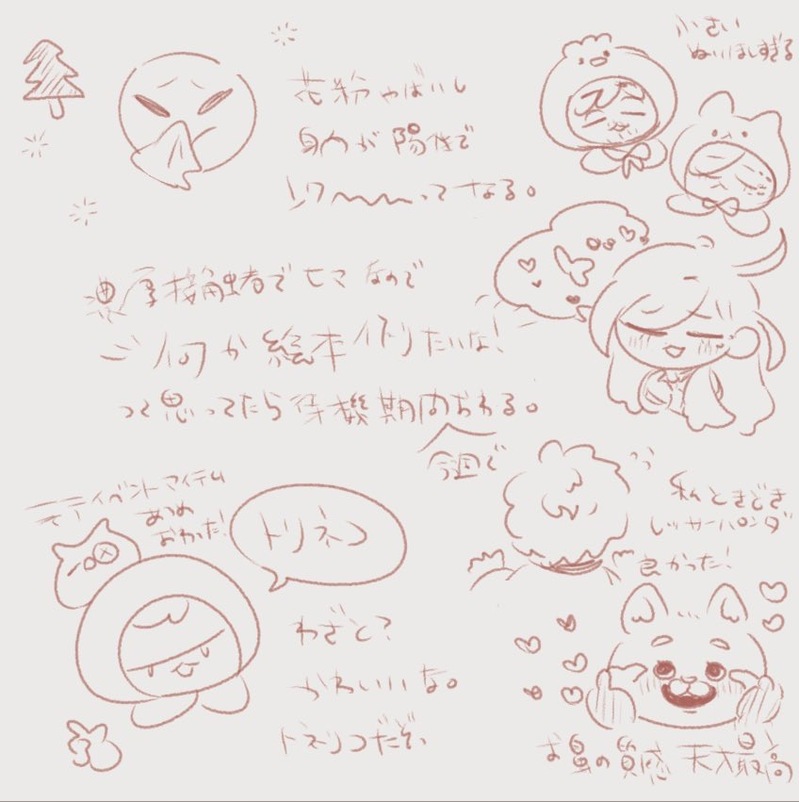 花粉やばいし
身内が陽性で
トワ〜〜〜ってなる。
小さい
ぬいほしすぎる
濃厚接触者でヒマなので
何か絵本作りたいな!
って思ってたら待機期間おわる。
今週で
イベントアイテム
あつめ
おわった!
トリネコ
わざと?
かわいいな。
トネリコだぞ。
私ときどき
レッサーパンダ
良かった!
お鼻の質感 天才最高